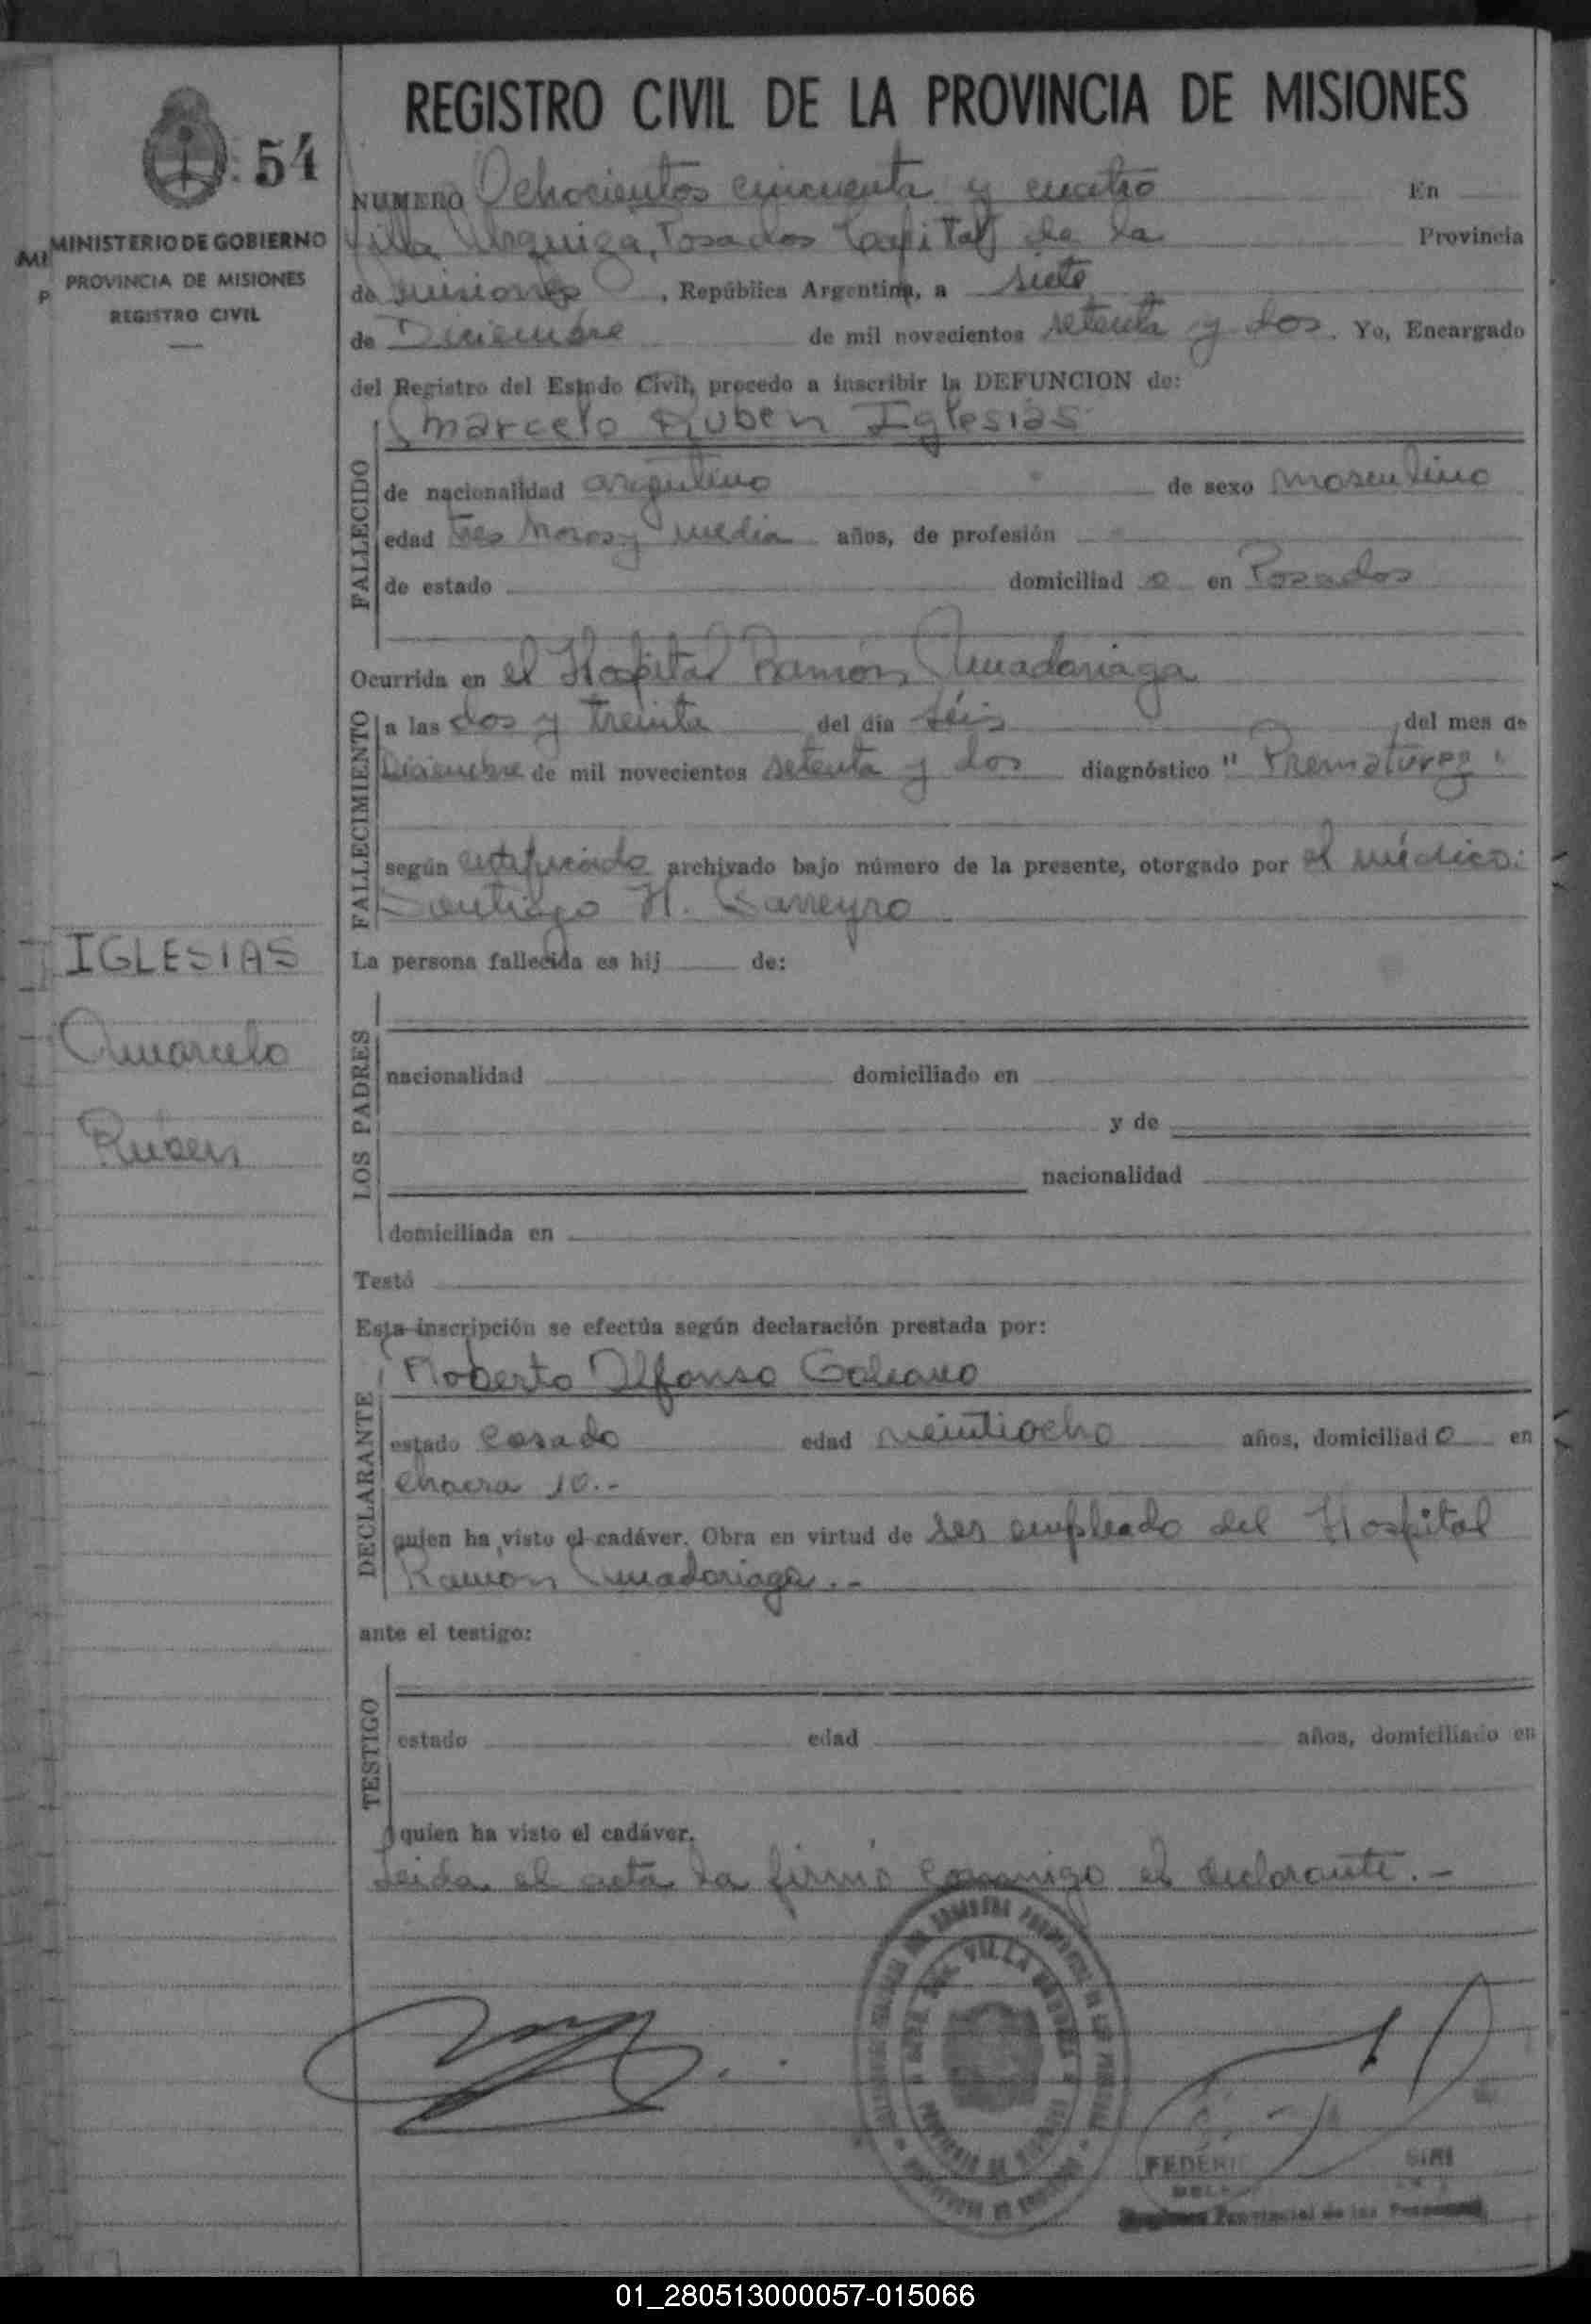 REGISTRO CIVIL DE LA PROVINCIA DE MISIONES
54
MINISTERIO DE GOBIERNO
PROVINCIA DE MISIONES
REGISTRO CIVIL
NUMERO Ochocientos cincuenta y cuatro En
Villa Urquiza, Posadas Capital de la Provincia
de Misiones, República Argentina, a siete
de Diciembre de mil novecientos setenta y dos. Yo, Encargado
del Registro del Estado Civil, procedo a inscribir la DEFUNCION de:
Marcelo Ruben Iglesias
FALLECIDO
de nacionalidad argentino de sexo masculino
edad tres horas y media años, de profesión
de estado domiciliad o en Posadas
Ocurrida en el Hospital Ramón Madariaga
FALLECIMIENTO
a las dos y treinta del día séis del mes de
Diciembre de mil novecientos setenta y dos diagnóstico "Prematurez"
según certificado archivado bajo número de la presente, otorgado por el médico:
Santiago H. Barreyro
La persona fallecida es hij de:
IGLESIAS
Marcelo
Ruben
LOS PADRES
nacionalidad domiciliado en
y de
nacionalidad
domiciliada en
Testó
Esta inscripción se efectúa según declaración prestada por:
Roberto Alfonso Galeano
DECLARANTE
estado casado edad veintiocho años, domiciliad o en
chacra 10.-
quien ha visto el cadáver. Obra en virtud de ser empleado del Hospital
Ramon Madariaga.-
ante el testigo:
TESTIGO
estado edad años, domiciliado en
quien ha visto el cadáver.
Leida el acta la firmó conmigo el declarante.-
VILLA
FEDERI SIRI
Provincial de las Personas
01_280513000057-015066